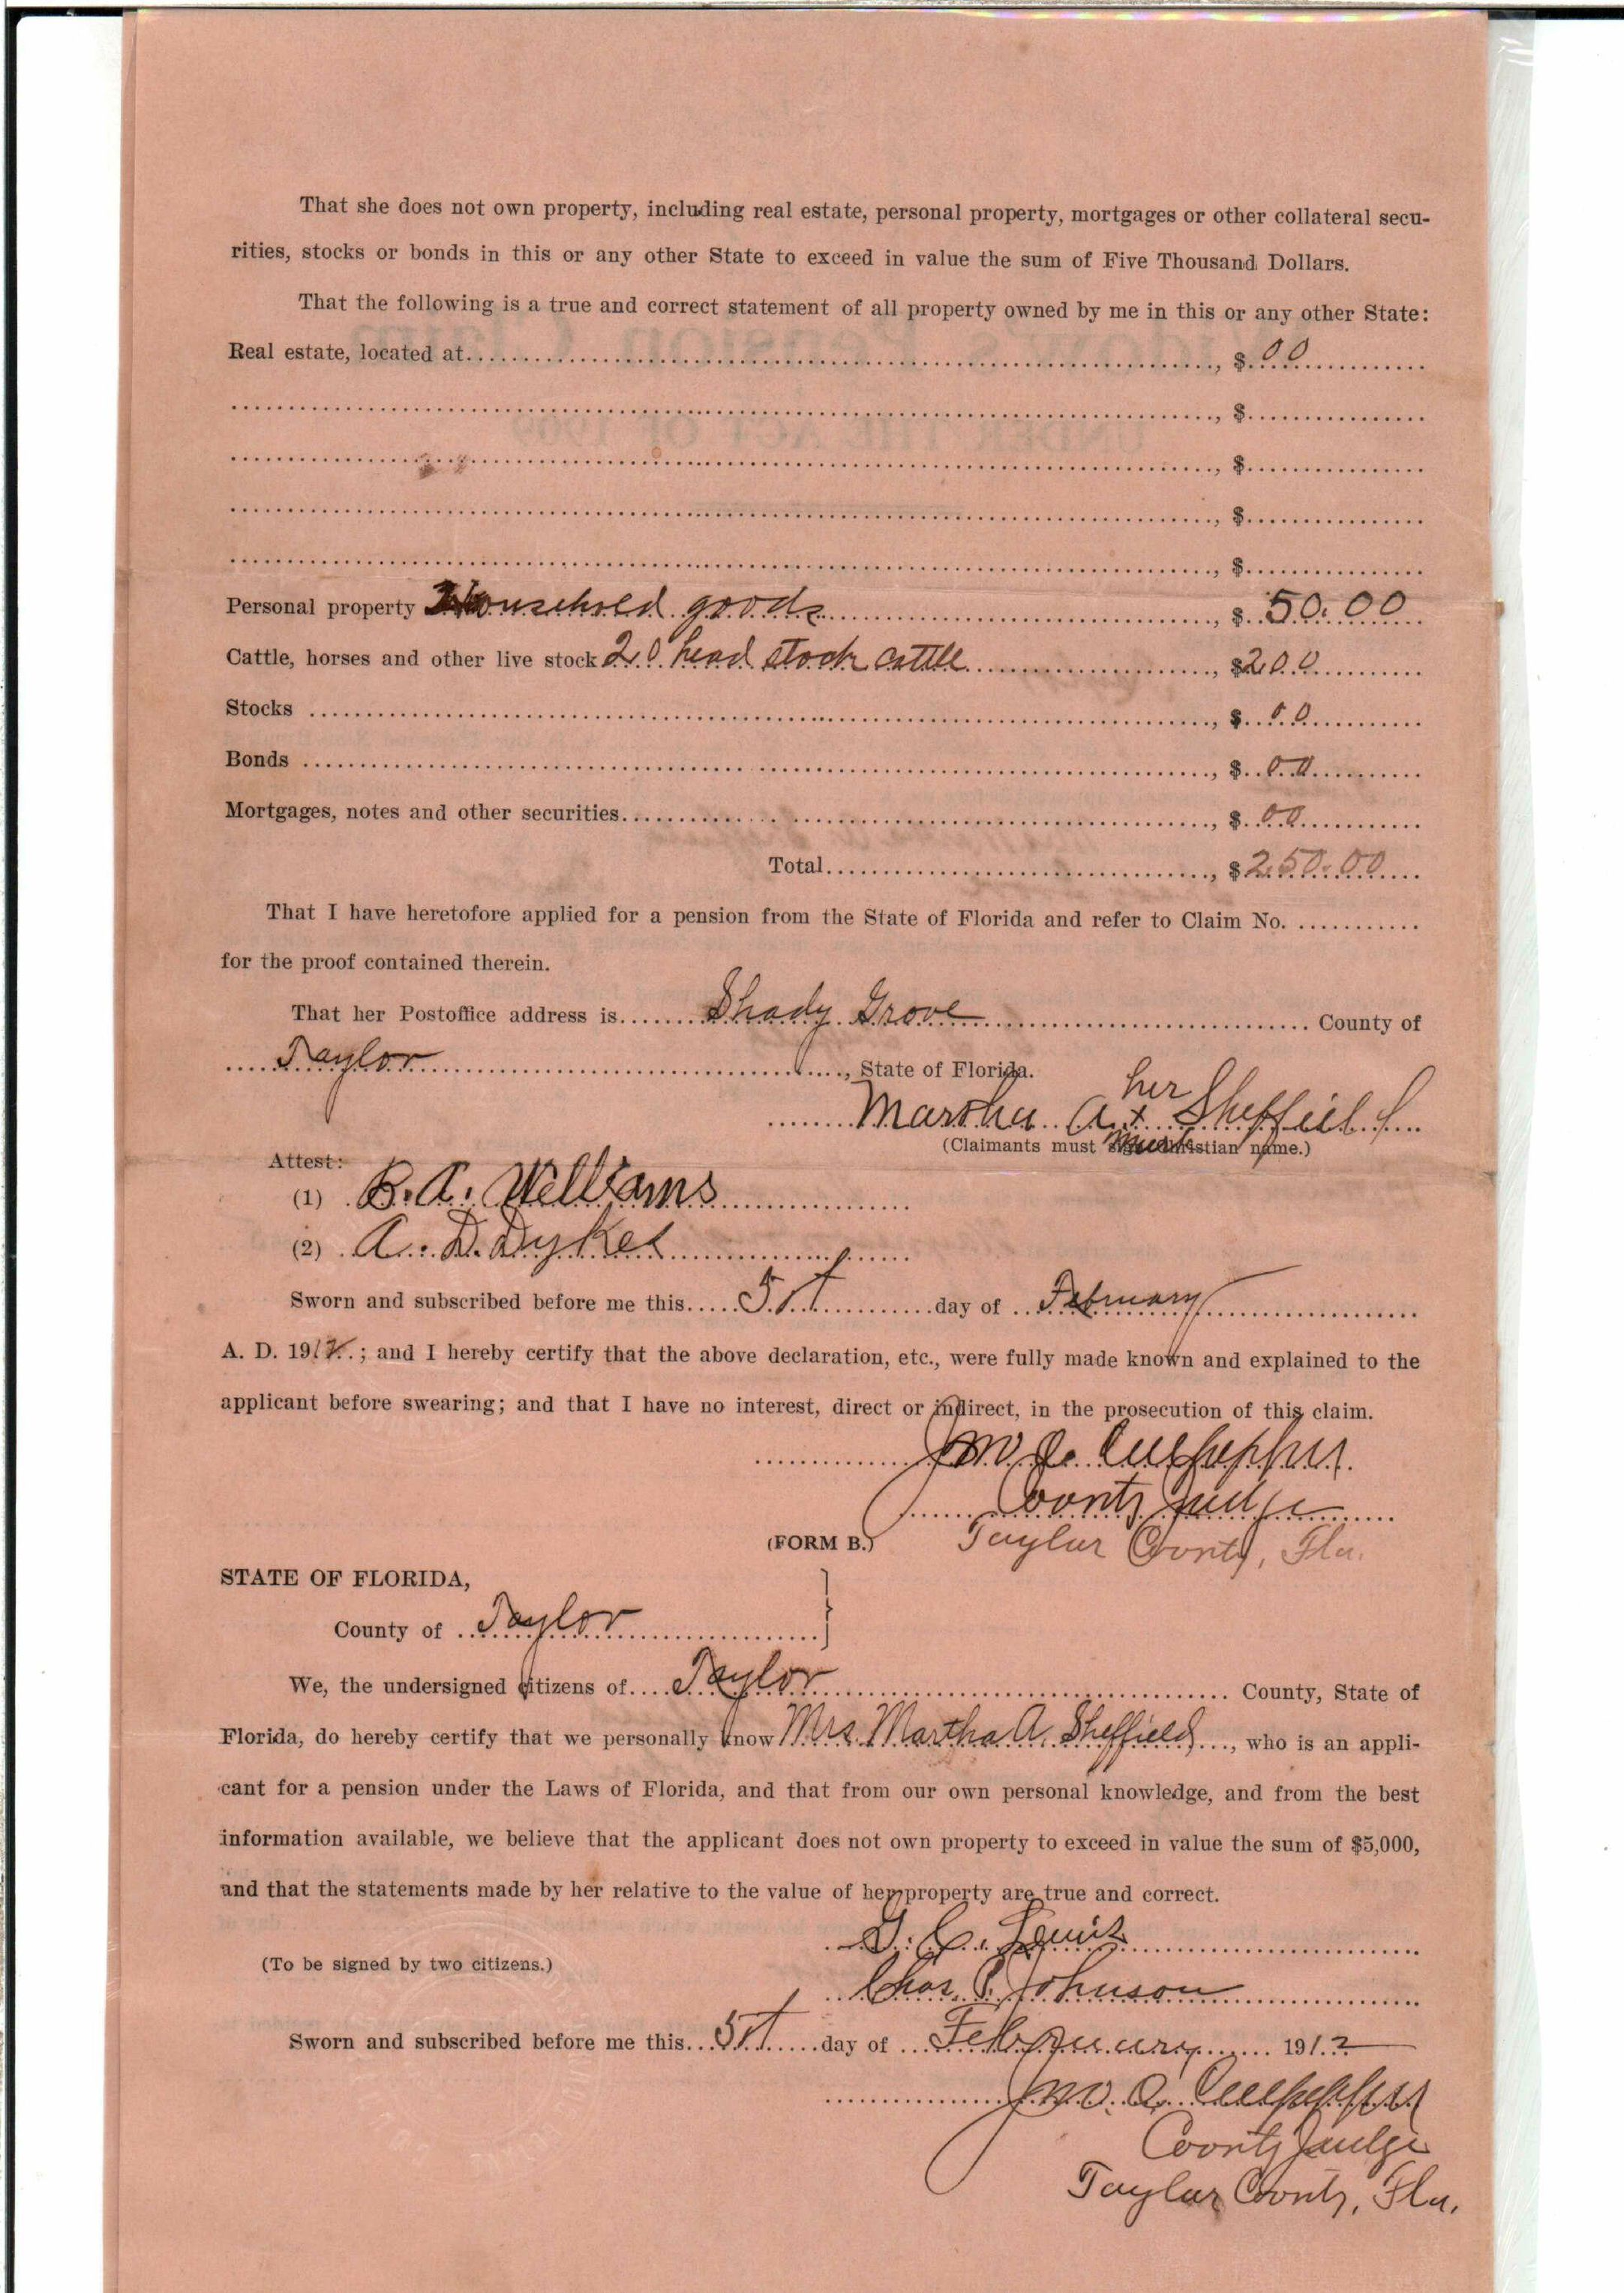 That she does not own property, including real estate, personal property, mortgages or other collateral secu-
rities, stocks or bonds in this or any other State to exceed in value the sum of Five Thousand Dollars.
That the following is a true and correct statement of all property owned by me in this or any other State:
Real estate, located at......, $ 00
......, $......
......, $......
......, $......
......, $......
Personal property Household goods......, $ 50.00
Cattle, horses and other live stock 20 head stock cattle......, $200
Stocks ......, $ 00
Bonds ......, $ 00
Mortgages, notes and other securities......, $ 00
Total......, $250.00
That I have heretofore applied for a pension from the State of Florida and refer to Claim No. ......
for the proof contained therein.
That her Postoffice address is...... Shady Grove ...... County of
Taylor ......, State of Florida.
her
Martha A. x Sheffield
mark
(Claimants must sign Christian name.)
Attest:
(1) B. A. Williams
(2) A. D. Dykes
Sworn and subscribed before me this 5th day of February
A. D. 1912; and I hereby certify that the above declaration, etc., were fully made known and explained to the
applicant before swearing; and that I have no interest, direct or indirect, in the prosecution of this claim.
County Judge
(FORM B.) Taylor County, Fla.
STATE OF FLORIDA,
County of Taylor
We, the undersigned citizens of Taylor County, State of
Florida, do hereby certify that we personally know Mrs. Martha A. Sheffield, who is an appli-
cant for a pension under the Laws of Florida, and that from our own personal knowledge, and from the best
information available, we believe that the applicant does not own property to exceed in value the sum of $5,000,
and that the statements made by her relative to the value of her property are true and correct.
(To be signed by two citizens.)
Chas. P. Johnson
Sworn and subscribed before me this 5th day of February 1912
County Judge
Taylor County, Fla.